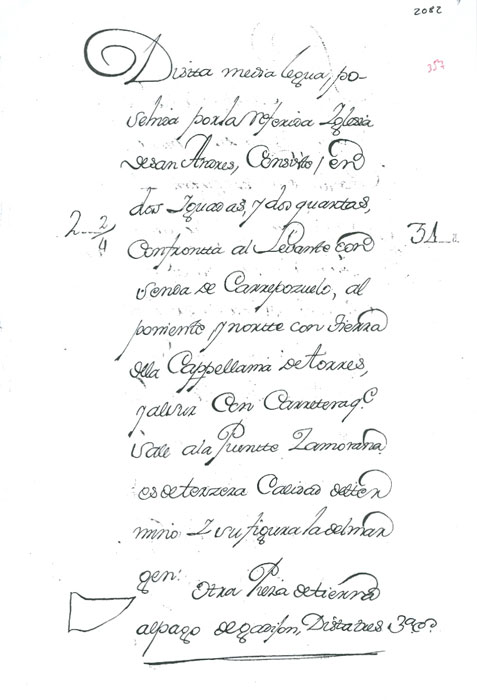 2082
357
Distta media legua, po-
sehida por la rreferida Iglesia
de san Andres, Consiste / en
dos Iguadas, y dos quarttas,
2 2/4
31
Confrontta al Levante con
senda de Carrepozuelo, al
poniente y nortte con tierra
della Cappellania de torres,
y al sur Con Carretera q.e
sale ala Puentte Zamorana
es de terzera Calidad del ter
mino I su figura la del mar
gen:
Otra Pieza de tierra
al pago de Distta tres